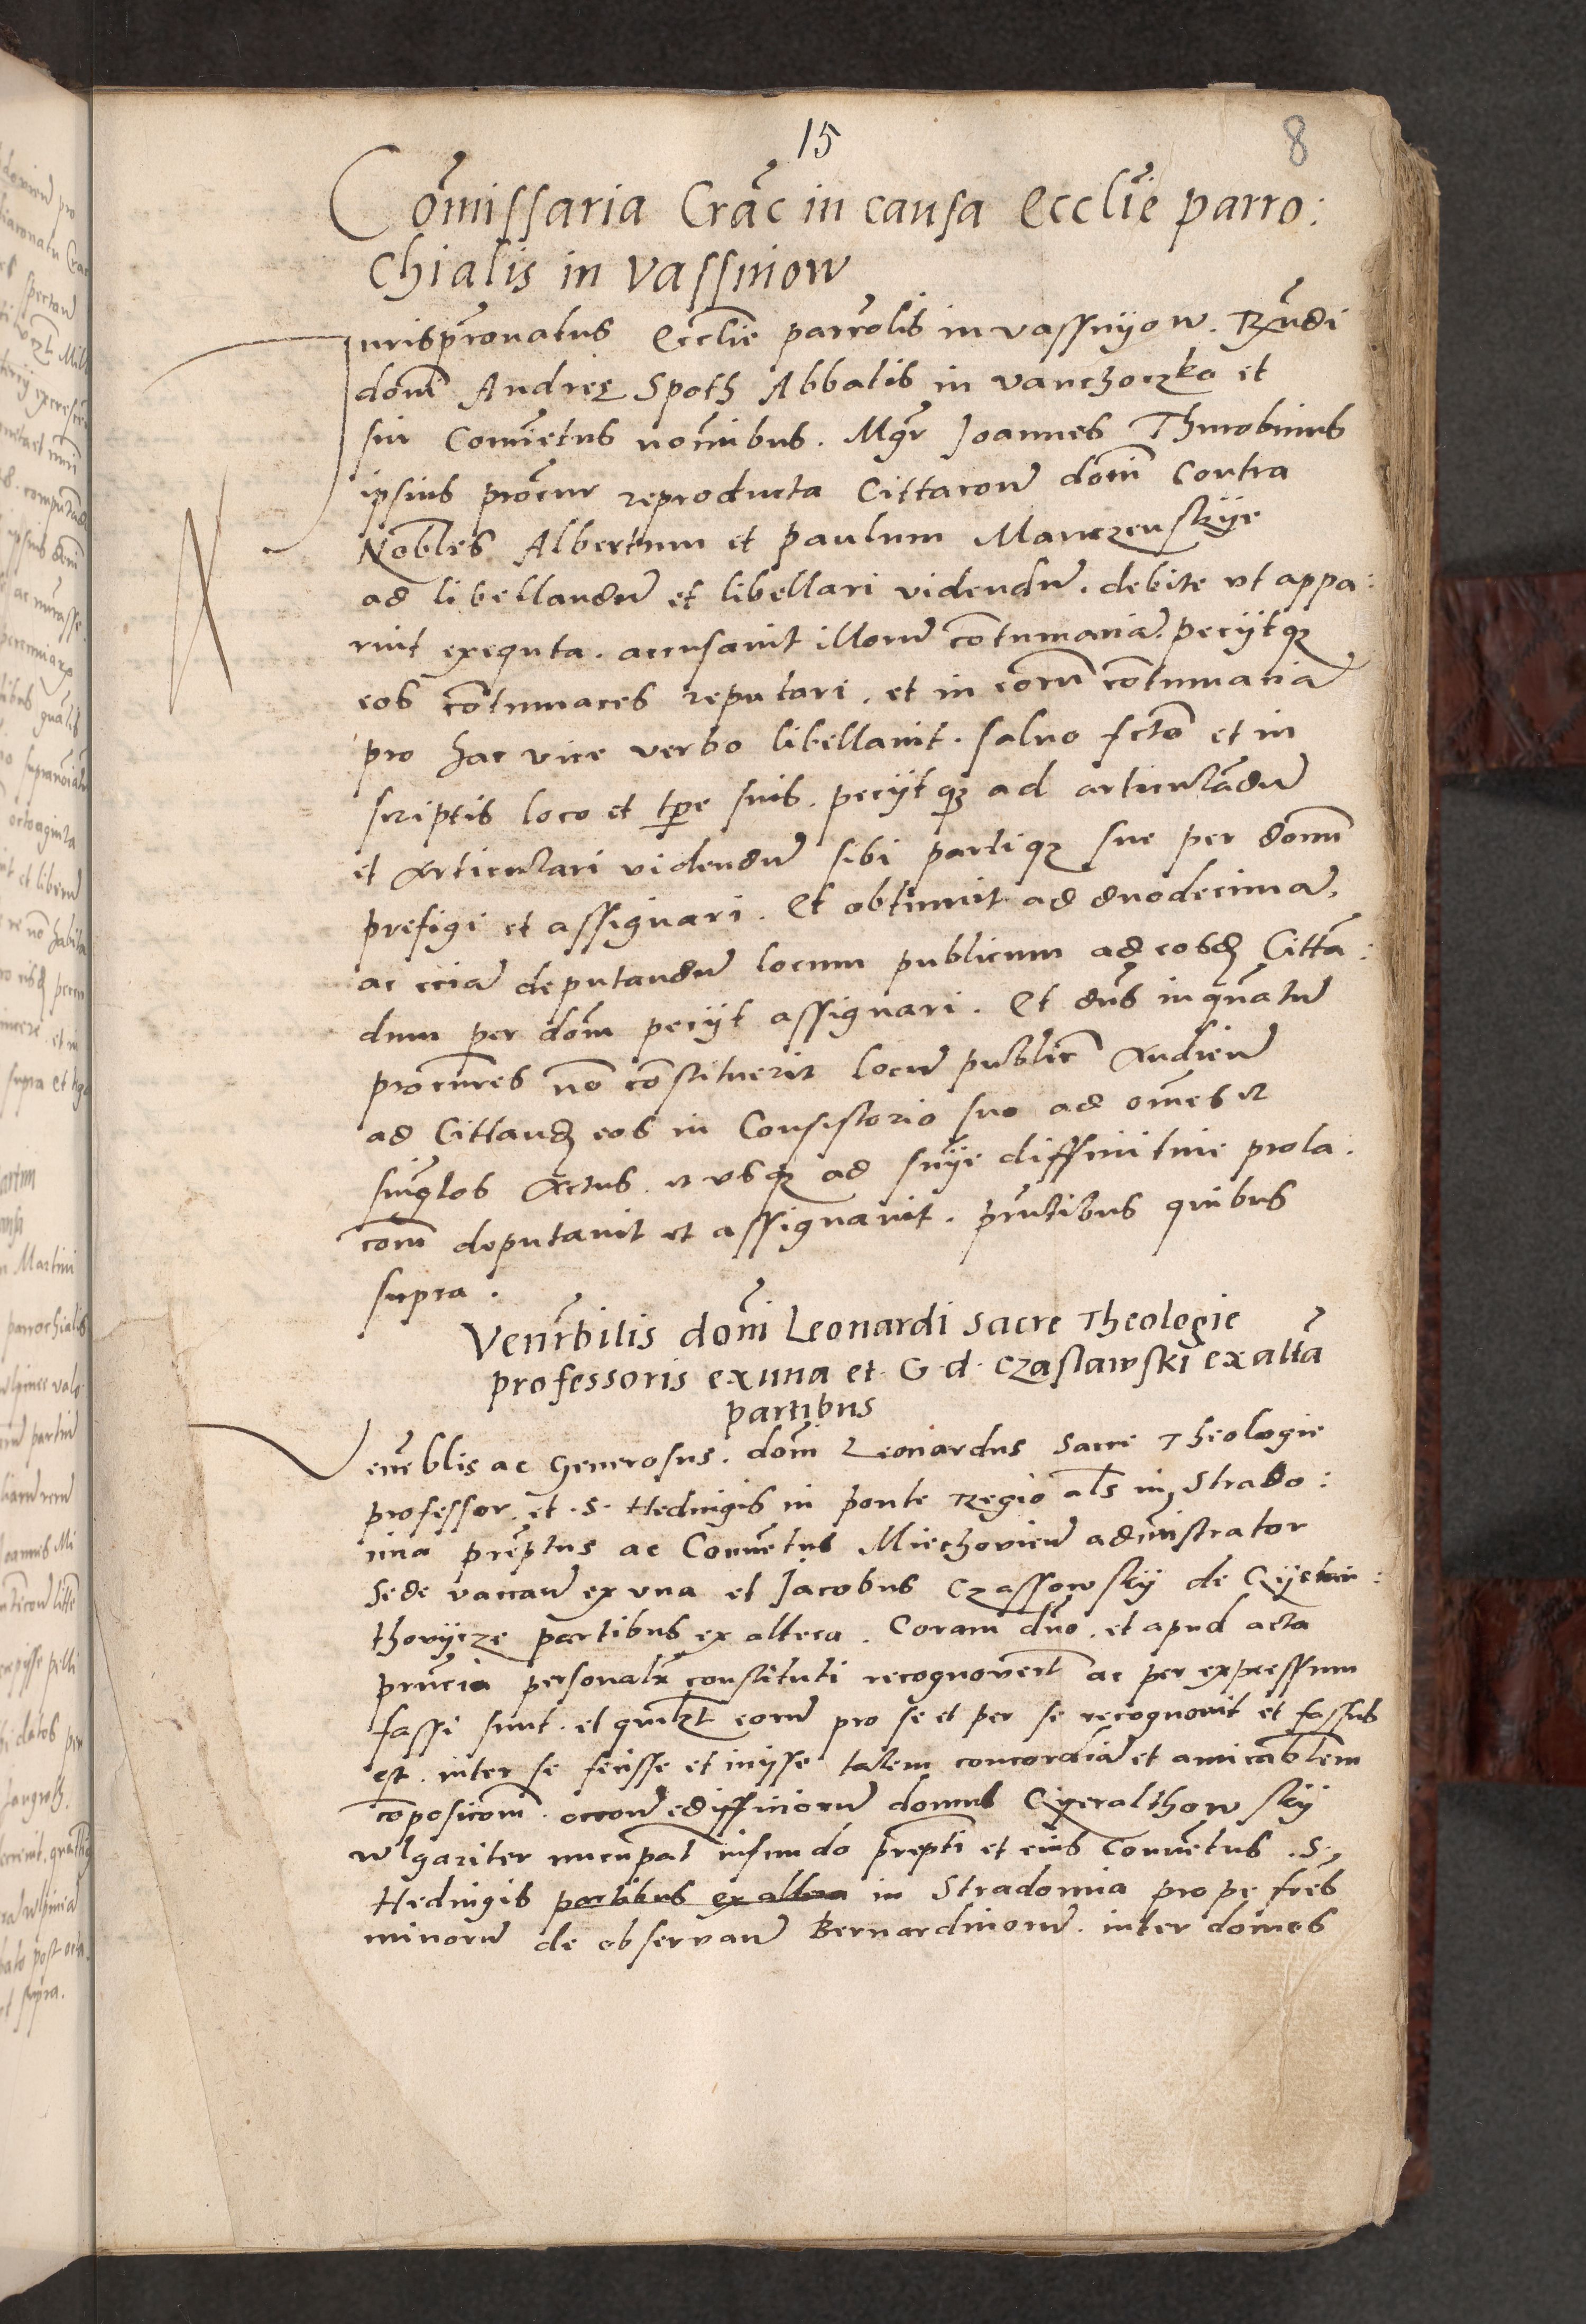 15
8
Com̃issaria Crac̃ in causa Ecclĩe parro:
chialis in vassniow
Iurispr̃onatus Ecclĩe parrõlis in vassnyow. Rx̃ndi
dom̃ Andreę Spoth Abbatis in vanchoczko et
sui Conuẽtus nom̃ibus. Mgr̃ Joannes Thurobinus
ipsius procur̃ reproducta Cittacoñe dom̃ contra
Nobles Albertum et paulum Manczenskye
ad libellandũ et libellari videndũ. debite vt appa:
ruit exequta. accusauit illorũ contumaciã. pecijtq₃
eos cõtumaces reputari. et in eorũ cõtumaciã
pro hac vice verbo libellauit. saluo fcto᷉ et in
scriptis loco et tp̃e suis. pecijtq₃ ad articulãdũ
et Articulari videndũ sibi partiq₃ sue per dom̃
prefigi et assignari. Et obtinuit ad duodecimã,
ac eciã deputandũ locum publicum ad eosd̃ Citta:
dum per dom̃ pecijt assignari. Et dñs inquãtũ
procur̃es nõ cõstituerit locũ publiĉ Audienc̃
ad Cittand̃ eos in Consistorio suo ad om̃es et
sing̃los Actus et vsq₃ ad snỹe diffinitiue prola:
com̃ deputauit et assignauit. pñtibus quibus
supra.
Venr̃bilis dom̃i Leonardi sacre Theologie
professoris ex una et G. d. Czaslawski ex altã
partibus
Venẽblis ac Generosus. dom̃ Leonardus sacre Theologie
professor et .S. Hedwigis in ponte Regio als̃ in Strado:
mia prẽptus ac Conuẽtus Miechouien̄ administrator
sede vaccan̄ ex vna et Jacobus Czassowsky de
thovycze partibus ex altera. Coram dño. et apud acta
pr̃ncia personalr̃ constituti recognouer̃t ac per expressum
fassi sunt. et quilz̃t eorũ pro se et per se recognouit et fassus
est. inter se fecisse et inijsse talem concordiã et amicablem
cõposicom̃. occon̄ ediffiniorũ domus Gyeralthowsky
wlgariter nuncupat̃ in fundo prepti et eius Conuẽtus .S.
Hedwigis partibus ex altera in Stradomia prope fres̃
minorũ de obseruan̄ Bernardinorũ. inter domos